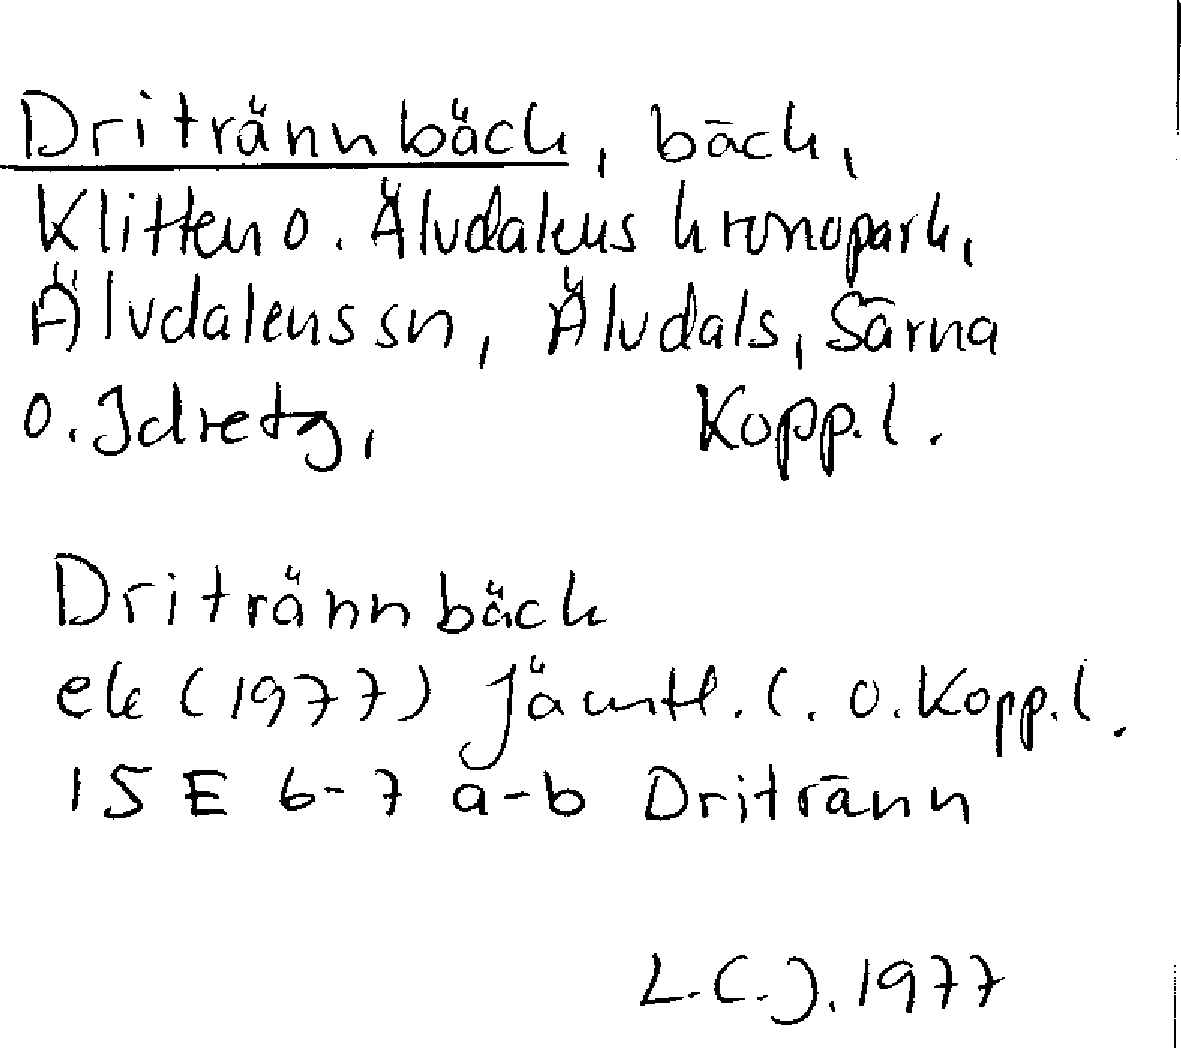 Dritrännbäck, bäck,
Klitten o. Älvdalens kronopark,
Älvdalens sn, Älvdals, Särna
o. Idre tg, Kopp. l.
Dritrännbäck
ek (1977) Jämtl. l. o. Kopp. l.
15 E 6-7 a-b Dritränn
L.C.J. 1977